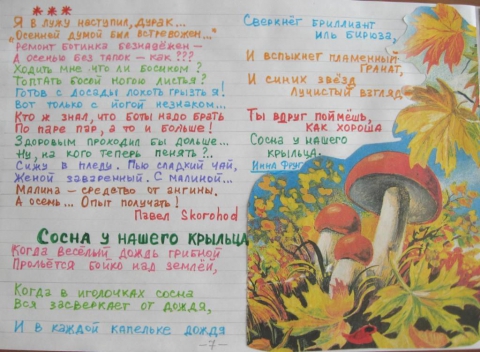 ***
Я в лужу наступил, дурак...
"Осенней думой был встревожен..."
Ремонт ботинка безнадёжен –
А осенью без тапок – как???
Ходить мне что ли босиком?
Топтать босой ногою листья?
Готов с досады локоть грызть я!
Вот только с йогой незнаком...
Кто ж знал, что боты надо брать
По паре пар, а то и больше!
Здоровым проходил бы дольше...
Ну, на кого теперь пенять?..
Сижу в пледу. Пью сладкий чай,
Женой заваренный. С малиной...
Малина – средство от ангины.
А осень... Опыт получай!
Павел Skorohod
Сосна у нашего крыльца
Когда весёлый дождь грибной
Прольётся бойко над землёй,
Когда в иголочках сосна
Вся засверкает от дождя,
И в каждой капельке дождя
–7–
Сверкнёт бриллиант
иль бирюза,
И вспыхнет пламенный
гранат,
И синих звёзд
лучистый взгляд –
Ты вдруг поймёшь,
как хороша
Сосна у нашего
крыльца.
Инна